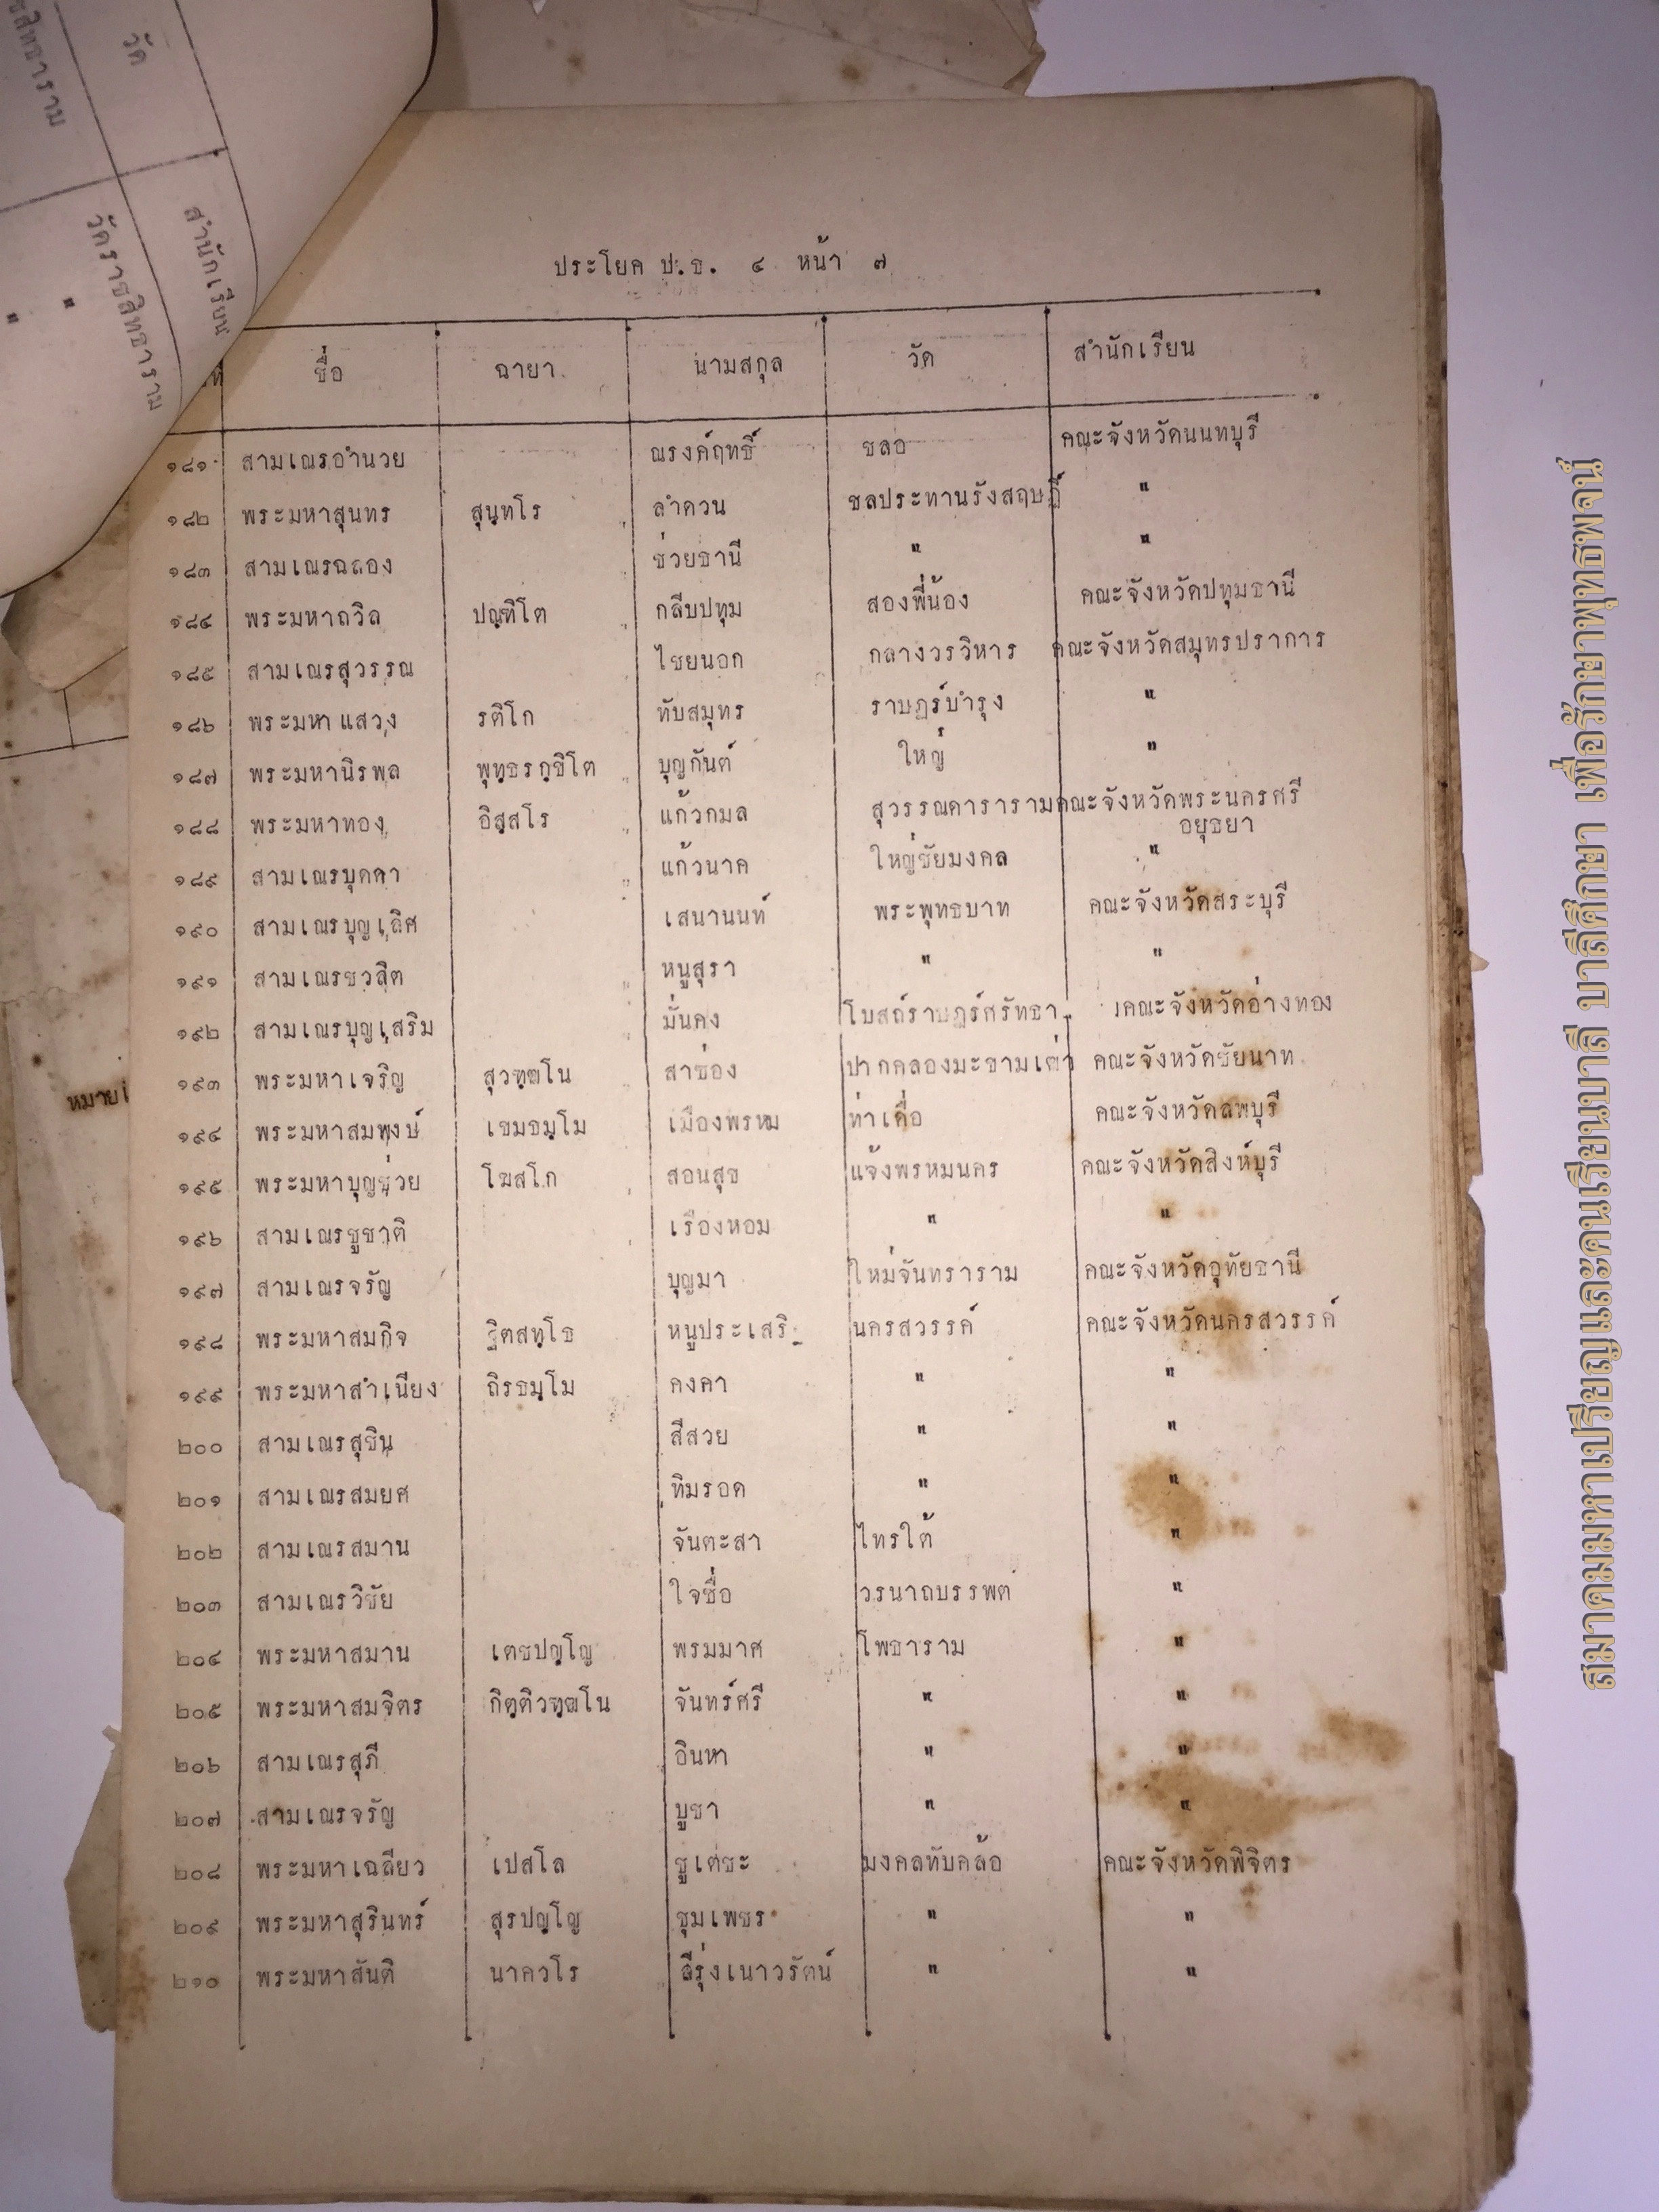 วัด
สำนักเรียน
วัดราชสิทธาราม
"
"
ประโยค ป.ธ. ๔ หน้า ๗
ชื่อ ฉายา นามสกุล วัด สำนักเรียน
๑๘๑ สามเณรอำนวย ณรงค์ฤทธิ์ ชลอ คณะจังหวัดนนทบุรี
๑๘๒ พระมหาสุนทร สุนฺทโร ลำดวน ชลประทานรังสฤษฎิ์ "
๑๘๓ สามเณรฉลอง ช่วยธานี " "
๑๘๔ พระมหาถวิล ปณฺฑิโต กลีบปทุม สองพี่น้อง คณะจังหวัดปทุมธานี
๑๘๕ สามเณรสุวรรณ ไชยนอก กลางวรวิหาร คณะจังหวัดสมุทรปราการ
๑๘๖ พระมหาแสวง รติโก ทับสมุทร ราษฎร์บำรุง "
๑๘๗ พระมหานิรพล พุทฺธรกฺขิโต บุญกันต์ ใหญ่ "
๑๘๘ พระมหาทอง อิสฺสโร แก้วกมล สุวรรณดาราราม คณะจังหวัดพระนครศรี
อยุธยา
๑๘๙ สามเณรบุดดา แก้วนาค ใหญ่ชัยมงคล "
๑๙๐ สามเณรบุญเลิศ เสนานนท์ พระพุทธบาท คณะจังหวัดสระบุรี
๑๙๑ สามเณรชวลิต หนูสุรา " "
๑๙๒ สามเณรบุญเสริม มั่นคง โบสถ์ราษฎร์ศรัทธา คณะจังหวัดอ่างทอง
๑๙๓ พระมหาเจริญ สุวฑฺฒโน สาช่อง ปากคลองมะขามเฒ่า คณะจังหวัดชัยนาท
๑๙๔ พระมหาสมพงษ์ เขมธมฺโม เมืองพรหม ท่าเดื่อ คณะจังหวัดลพบุรี
๑๙๕ พระมหาบุญช่วย โฆสโก สอนสุข แจ้งพรหมนคร คณะจังหวัดสิงห์บุรี
๑๙๖ สามเณรชูชาติ เรืองหอม " "
๑๙๗ สามเณรจรัญ บุญมา ใหม่จันทราราม คณะจังหวัดอุทัยธานี
๑๙๘ พระมหาสมกิจ ฐิตสทฺโธ หนูประเสริ นครสวรรค์ คณะจังหวัดนครสวรรค์
๑๙๙ พระมหาสำเนียง ถิรธมฺโม คงคา " "
๒๐๐ สามเณรสุชิน สีสวย " "
๒๐๑ สามเณรสมยศ ทิมรอด " "
๒๐๒ สามเณรสมาน จันตะสา ไทรใต้ "
๒๐๓ สามเณรวิชัย ใจซื่อ วรนาถบรรพต "
๒๐๔ พระมหาสมาน เตชปญฺโญ พรมมาศ โพธาราม "
๒๐๕ พระมหาสมจิตร กิตฺติวฑฺฒโน จันทร์ศรี " "
๒๐๖ สามเณรสุภี อินหา " "
๒๐๗ สามเณรจรัญ บูชา " "
๒๐๘ พระมหาเฉลียว เปสโล ชูเตชะ มงคลทับคล้อ คณะจังหวัดพิจิตร
๒๐๙ พระมหาสุรินทร์ สุรปญฺโญ ชุมเพชร " "
๒๑๐ พระมหาสันติ นาควโร ลีรุ่งเนาวรัตน์ " "
สมาคมมหาเปรียญและคนเรียนบาลี บาลีศึกษา เพื่อรักษาพุทธพจน์